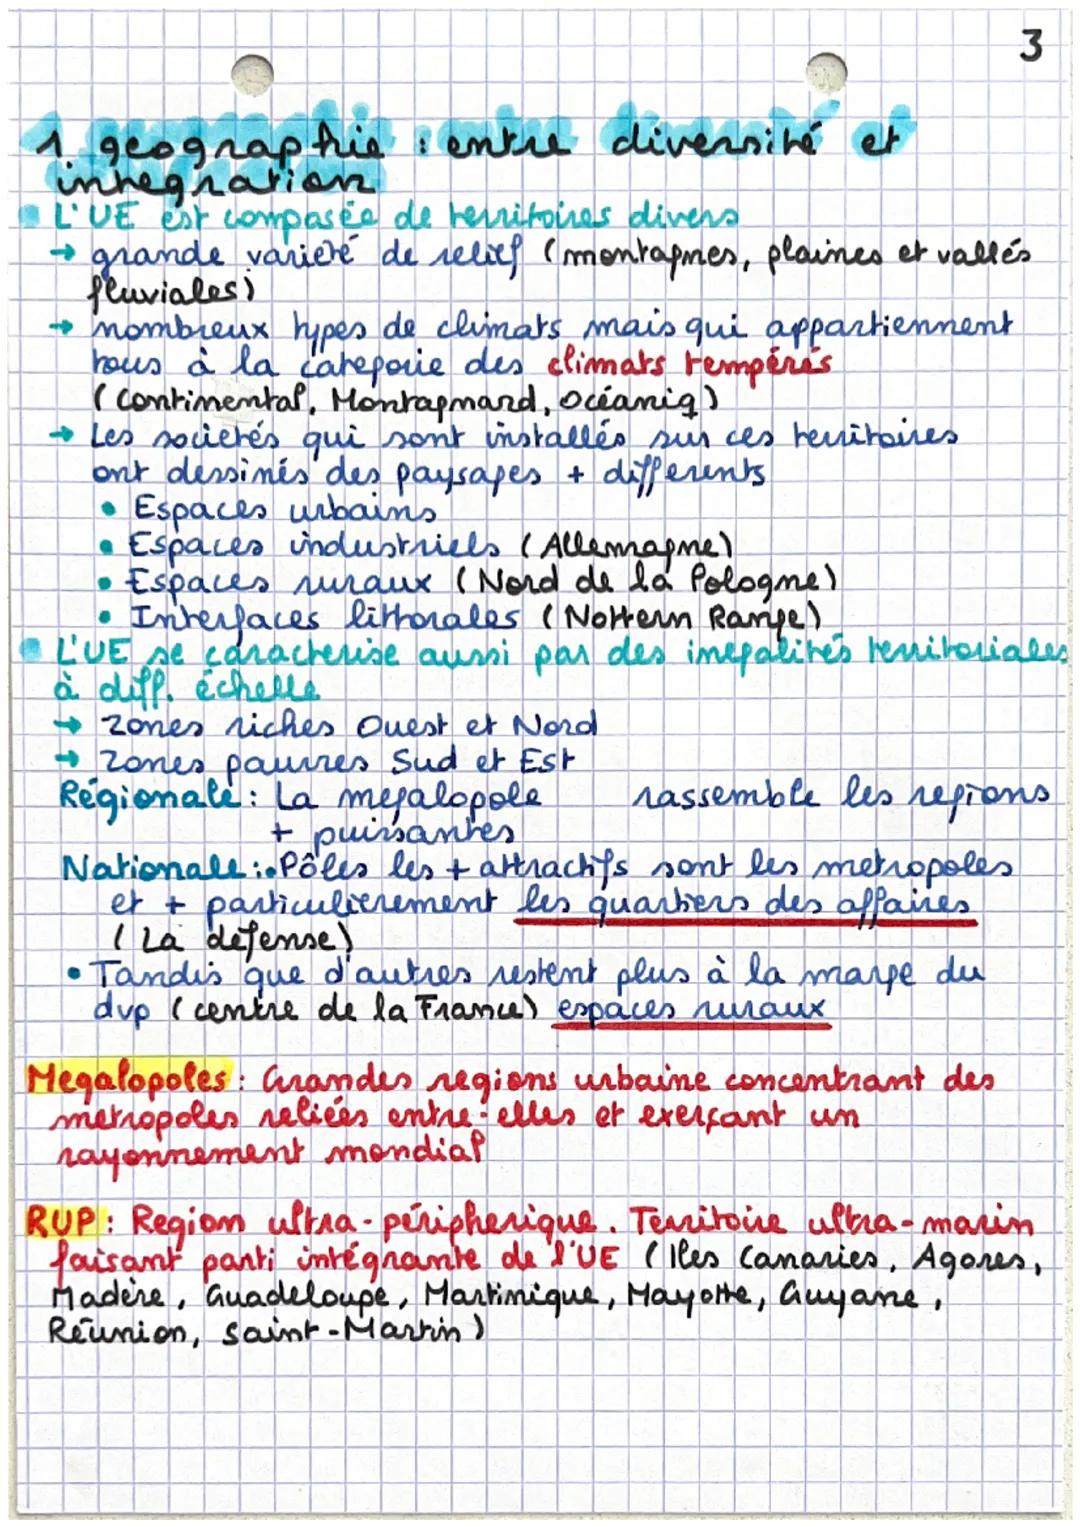 3
1. geographie : entre diversité et
integration
L'UE est composée de territoires divers
→ grande varieté de relief (montagnes, plaines et vallés
fluviales)
→ nombreux types de climats mais qui appartiennent
tous à la categorie des climats tempérés
(Continental, Montagnard, Océaniq)
→ Les societés qui sont installés sur ces territoires
ont dessinés des paysages + differents
• Espaces urbains
• Espaces industriels (Allemagne)
• Espaces ruraux (Nord de la Pologne)
• Interfaces littorales (Nottern Range)
L'UE se caracterise aussi par des inegalités territoriales
à diff. échelle
→ Zones riches Ouest et Nord
→ Zones pauvres Sud et Est
Régionale : La megalopole rassemble les regions
+ puissantes
Nationale : • Pôles les + attractifs sont les metropoles
et + particulierement les quartiers des affaires
(La défense)
• Tandis que d'autres restent plus à la marge du
dvp (centre de la France) espaces ruraux
Megalopoles : Grandes regions urbaine concentrant des
metropoles reliées entre-elles et exerçant un
rayonnement mondial
RUP : Region ultra-péripherique. Territoire ultra-marin
faisant parti intégrante de l'UE (Iles Canaries, Açores,
Madère, Guadeloupe, Martinique, Mayotte, Guyane,
Réunion, Saint-Martin)